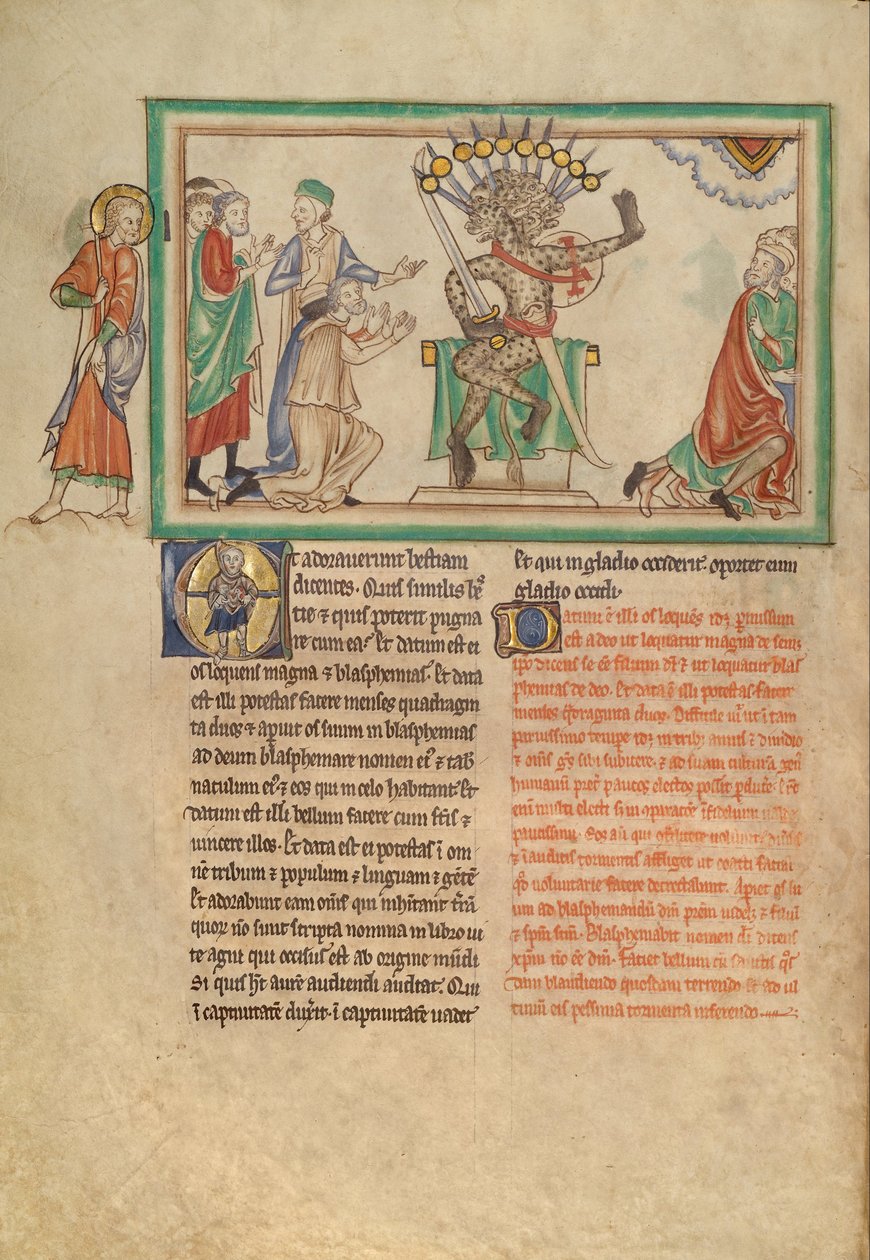 Et adoraverunt bestiam
dicentes. Quis similis bẽ
tie ⁊ quis poterit pugna
re cum ea? Et datum est ei
os loquens magna ⁊ blasphemias. Et data
est illi potestas facere menses quadragin
ta duos ⁊ aperuit os suum in blasphemias
ad deum blasphemare nomen eiꝰ ⁊ tab̾
naculum eiꝰ ⁊ eos qui in celo habitant. Et
datum est illi bellum facere cum sc̃is ⁊
uincere illos. Et data est ei potestas ĩ om
nẽ tribum ⁊ populum ⁊ linguam ⁊ gẽtẽ
Et adorabunt eam om̃s qui inhĩtant t̃rã
quoꝝ nõ sunt scripta nomina in libro ui
te agni qui occisus est ab origine mũdi
Si quis h̃t aurẽ audiendi audiat. Qui
ĩ captiuitatẽ dux̃it. ĩ captiuitatẽ uadet
Et qui in gladio occiderit. oportet eum
gladio occidi.
Datum ẽ illi os loquẽs idꝫ p̃missum
est a deo ut loquatur magna de sem̃
ipo dicens se eẽ filium dĩ ⁊ ut loquatur blas
phemias de deo. Et data ẽ illi potestas facere
menses q̃draginta duos. Difficile ut ĩ tam
paruissimo tempore idꝫ in tribꝫ annis ⁊ dimidio
⁊ om̃s gẽs sibi subicere. ⁊ ad suam culturã genꝰ
humanũ pret̾ paucos electos possit p̾ducere.
enĩ multi electi s; in cõparatõe ĩfidelium
paucissimi. Eos aũ qui
⁊ ĩauditis tormentis affliget ut coacti faciãt
qḋ uoluntarie facere detrectabunt. Apiet os su
um ad blasphemandũ dm̃ prẽm ⁊ filiũ
⁊ sp̃m sc̃m. Blasphemabit nomen dĩ dicens
xp̃m nõ eẽ dm̃. Faciet bellum cũ sanctis q̃s
dam blandiendo quosdam terrendo ⁊ ad ul
timũ eis pessima tormenta inferendo.